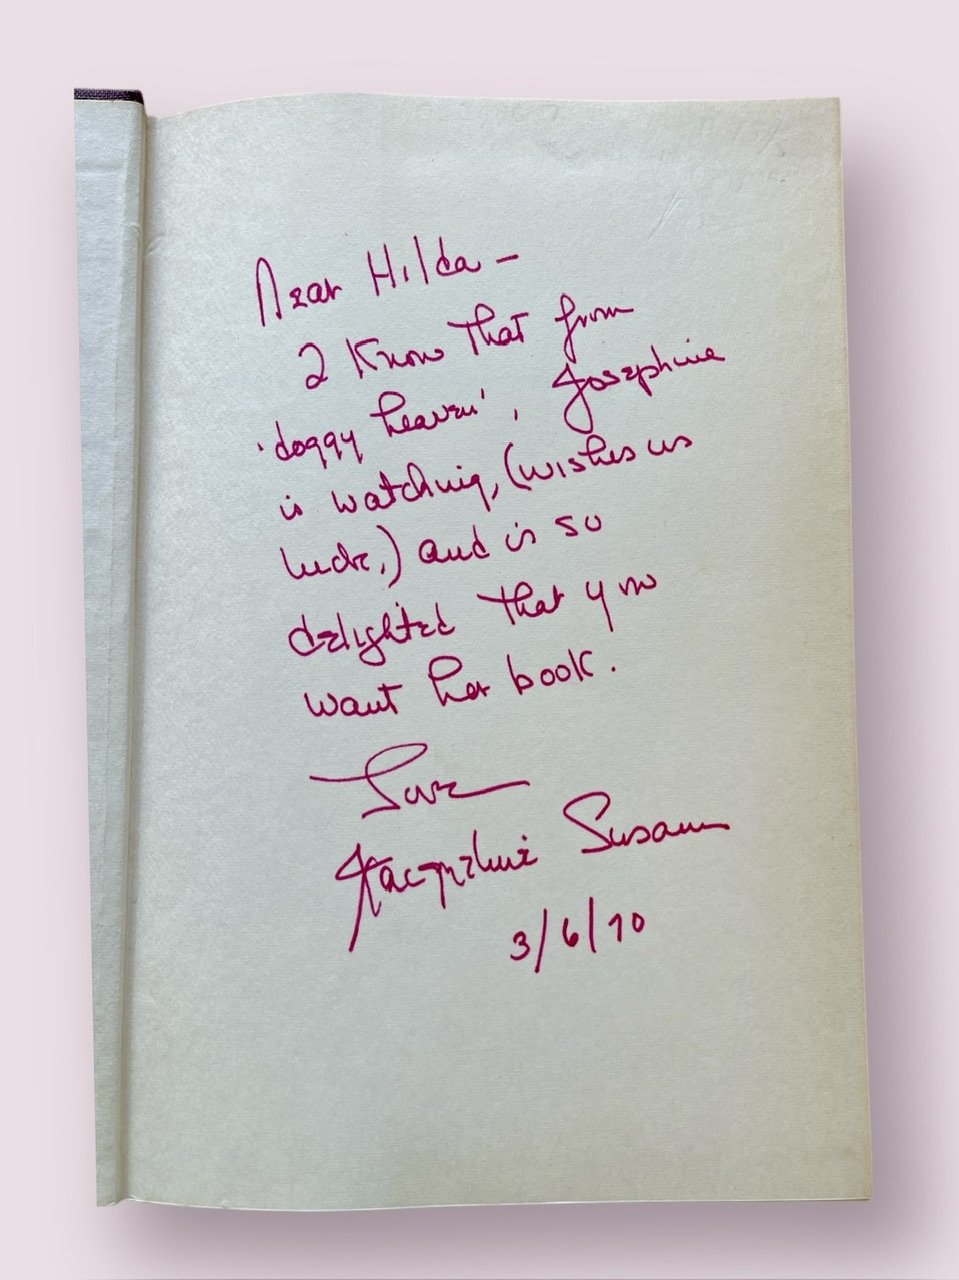 Dear Hilda -
I know that from
'doggy heaven', Josephine
is watching, (wishes us
luck,) and is so
delighted that you
want her book.
Love
Jacqueline Susann
3/6/70